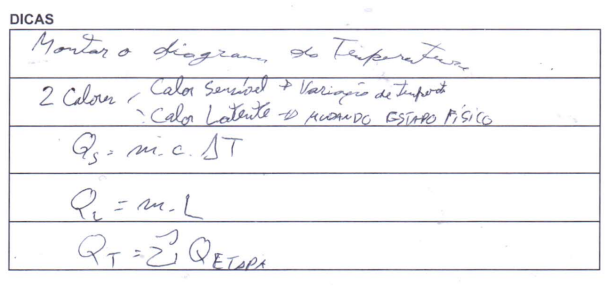 DICAS
Montar o diagrama de Temperatura
2 Calores, Calor Sensível → Variação de Temperat
: Calor Latente → MUDANDO ESTADO FÍSICO
Qs = m.c.ΔT
QL = m.L
QT = Σ QETAPA